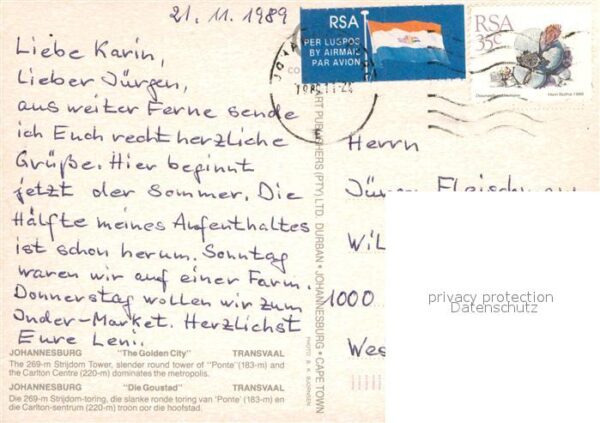 21. 11. 1989
Liebe Karin,
Lieber Jürgen,
aus weiter Ferne sende
ich Euch recht herzliche
Grüße. Hier beginnt
jetzt der Sommer. Die
Hälfte meines Aufenthaltes
ist schon herum. Sonntag
waren wir auf einer Farm.
Donnerstag wollen wir zum
Inder-Market. Herzlichst
Eure Leni.
JOHANNESBURG "The Golden City" TRANSVAAL
The 269-m Strijdom Tower, slender round tower of "Ponte" (183-m) and
the Carlton Centre (220-m) dominates the metropolis.
JOHANNESBURG "Die Goustad" TRANSVAAL
Die 269-m Strijdom-toring, die slanke ronde toring van 'Ponte' (183-m) en
die Carlton-sentrum (220-m) troon oor die hoofstad.
ART PUBLISHERS (PTY) LTD. DURBAN • JOHANNESBURG • CAPE TOWN
RSA
PER LUGPOS
BY AIRMAIL
PAR AVION
RSA
35c
Herrn
Wil
1000
Wes
privacy protection
Datenschutz